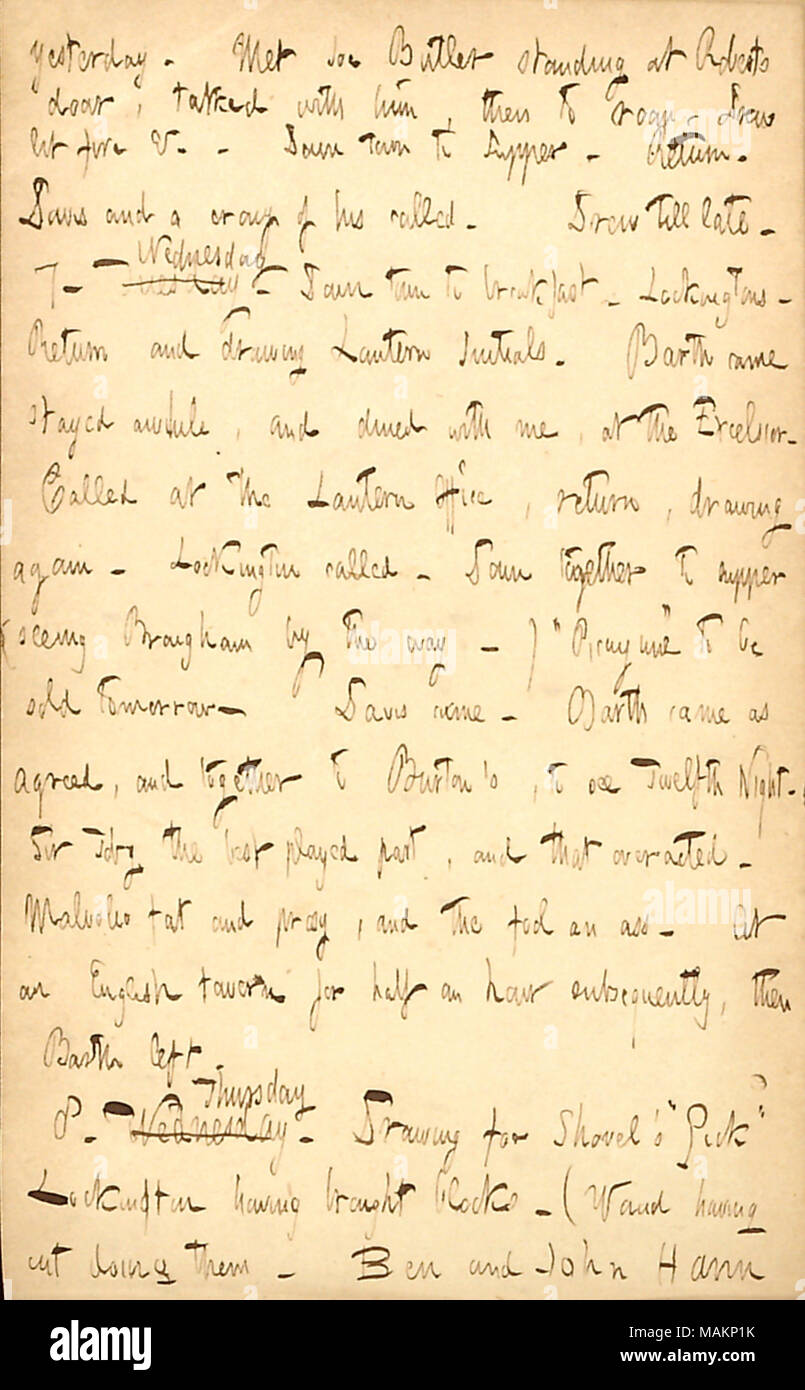 yesterday. Met Joe Butler standing at Roberts
door, talked with him, then to room. Drew
lit fire &c. - Down town to supper - Return.
Davis and a crony of his called. Drew till late.
7. Tuesday Wednesday. Down town to breakfast. Lockingtons.
Return and drawing Lantern Initials. Barth came
stayed awhile, and dined with me, at the Excelsior.
Called at the Lantern Office, return, drawing
again. Lockington called. Down together to supper
(seeing Brougham by the way -) "Picayune" to be
sold tomorrow. Davis came. Barth came as
agreed, and together to Burton's, to see Twelfth Night.
Sir Toby the best played part, and that overacted.
Malvolio fat and prosy, and the fool an ass. At
an English tavern for half an hour subsequently, then
Barth left.
8. Wednesday Thursday. Drawing for Shovel's "Pick"
Lockington having brought blocks. (Waud having
cut doing them. Ben and John Hann
alamy
Image ID: MAKP1K
www.alamy.com